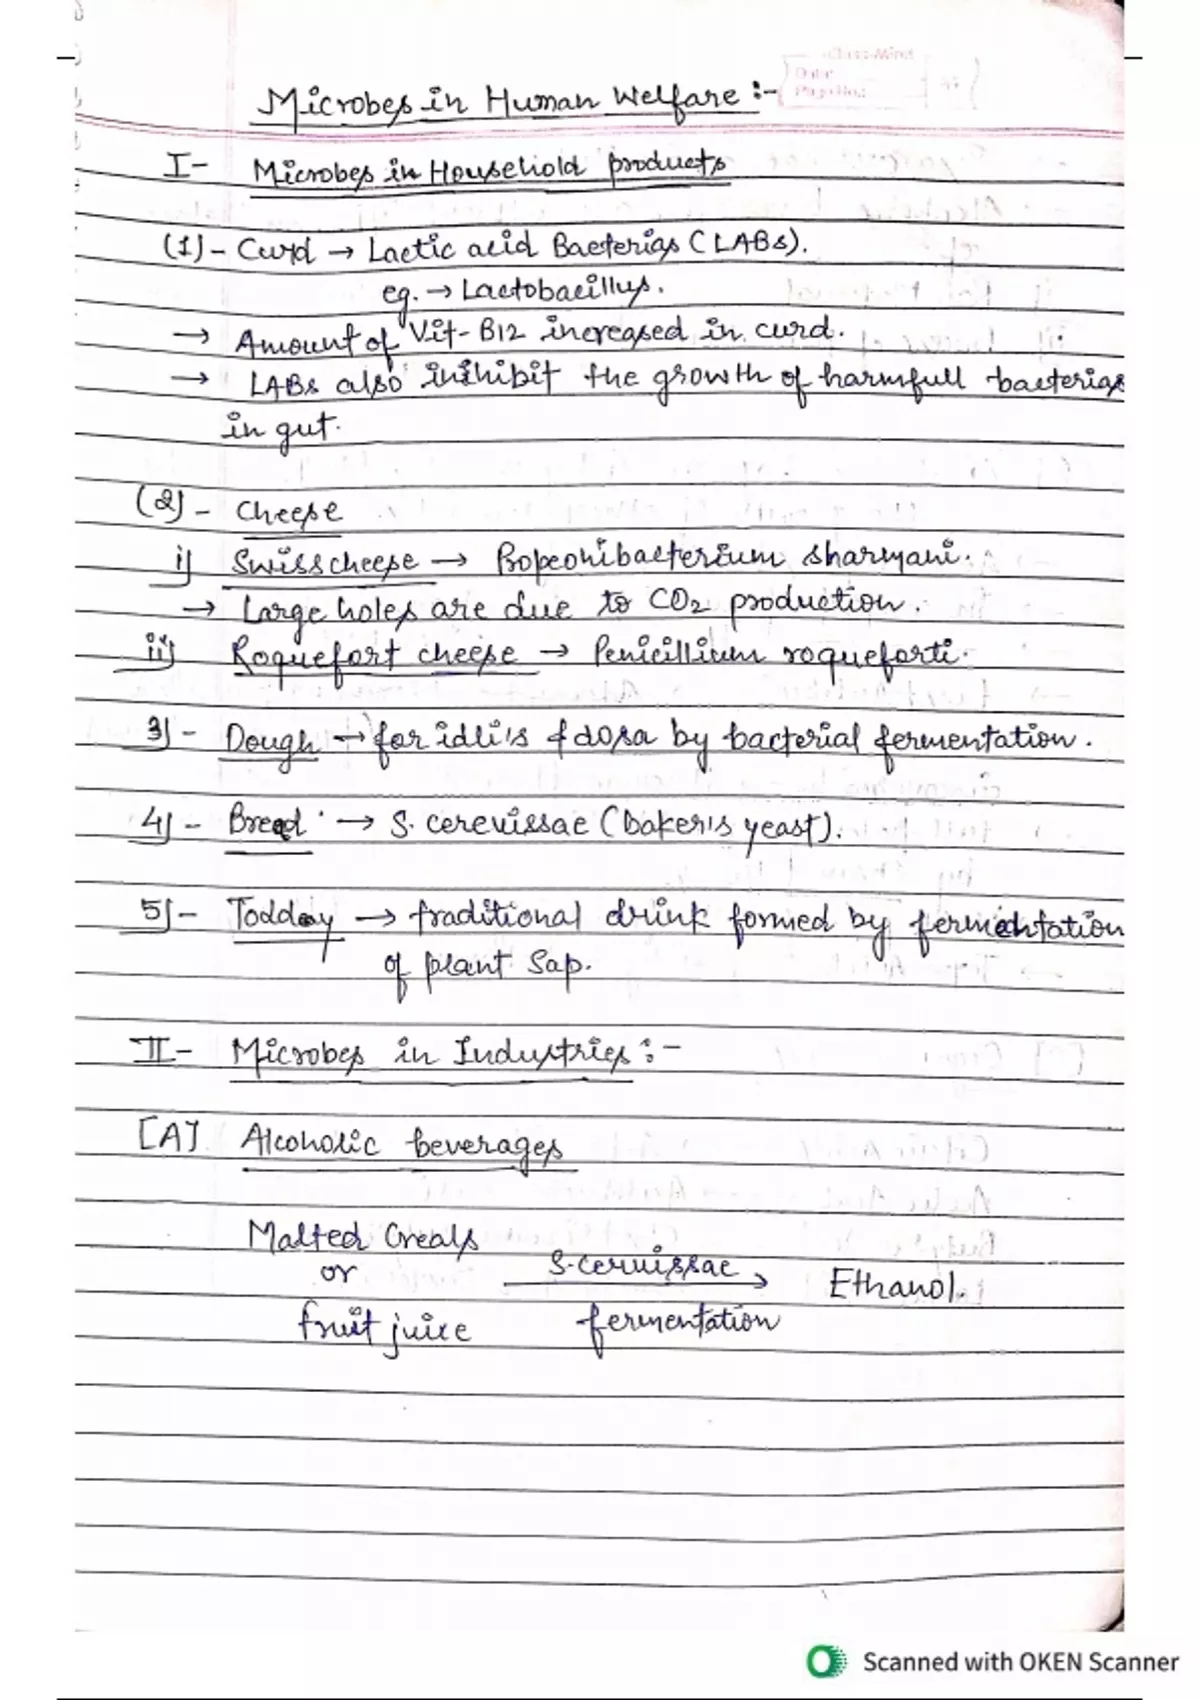 Microbes in Human Welfare :-
I- Microbes in Household products
(1)- Curd → Lactic acid Bacterias (LABs).
eg. → Lactobacillus.
→ Amount of Vit-B12 increased in curd.
→ LABs also inhibit the growth of harmfull bacterias
in gut.
(2)- Cheese
i) Swiss cheese → Propeonibacterium sharmani.
→ Large holes are due to CO2 production.
ii) Roquefort cheese → Penicillium roqueforti.
3)- Dough → for idli's & dosa by bacterial fermentation.
4)- Bread → S. cerevissae (baker's yeast).
5)- Todday → traditional drink formed by fermentation
of plant sap.
II- Microbes in Industries :-
[A] Alcoholic beverages
Malted Creals
or
fruit juice
S.cervissae
fermentation
Ethanol.
Scanned with OKEN Scanner